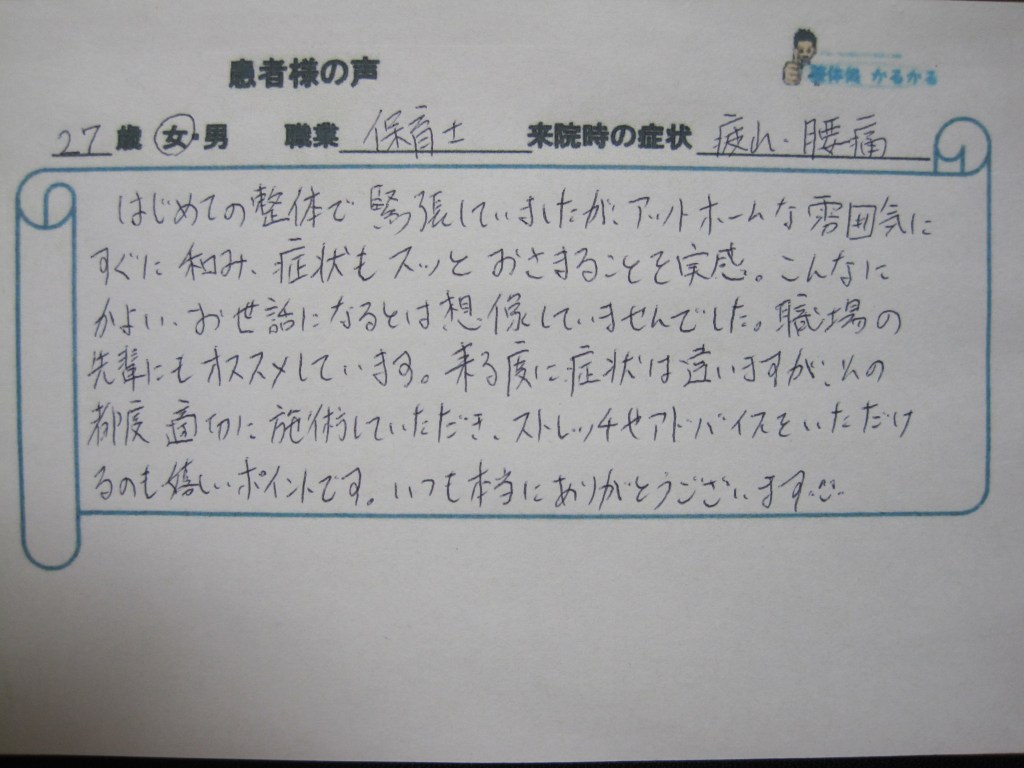 患者様の声
整体処 かるかる
27 歳 女・男 職業 保育士 来院時の症状 疲れ・腰痛
はじめての整体で緊張していましたが、アットホームな雰囲気に
すぐに和み、症状もスッとおさまることを実感。こんなに
かよい、お世話になるとは想像していませんでした。職場の
先輩にもオススメしています。来る度に症状は違いますが、その
都度適切に施術していただき、ストレッチやアドバイスをいただけ
るのも嬉しいポイントです。いつも本当にありがとうございます